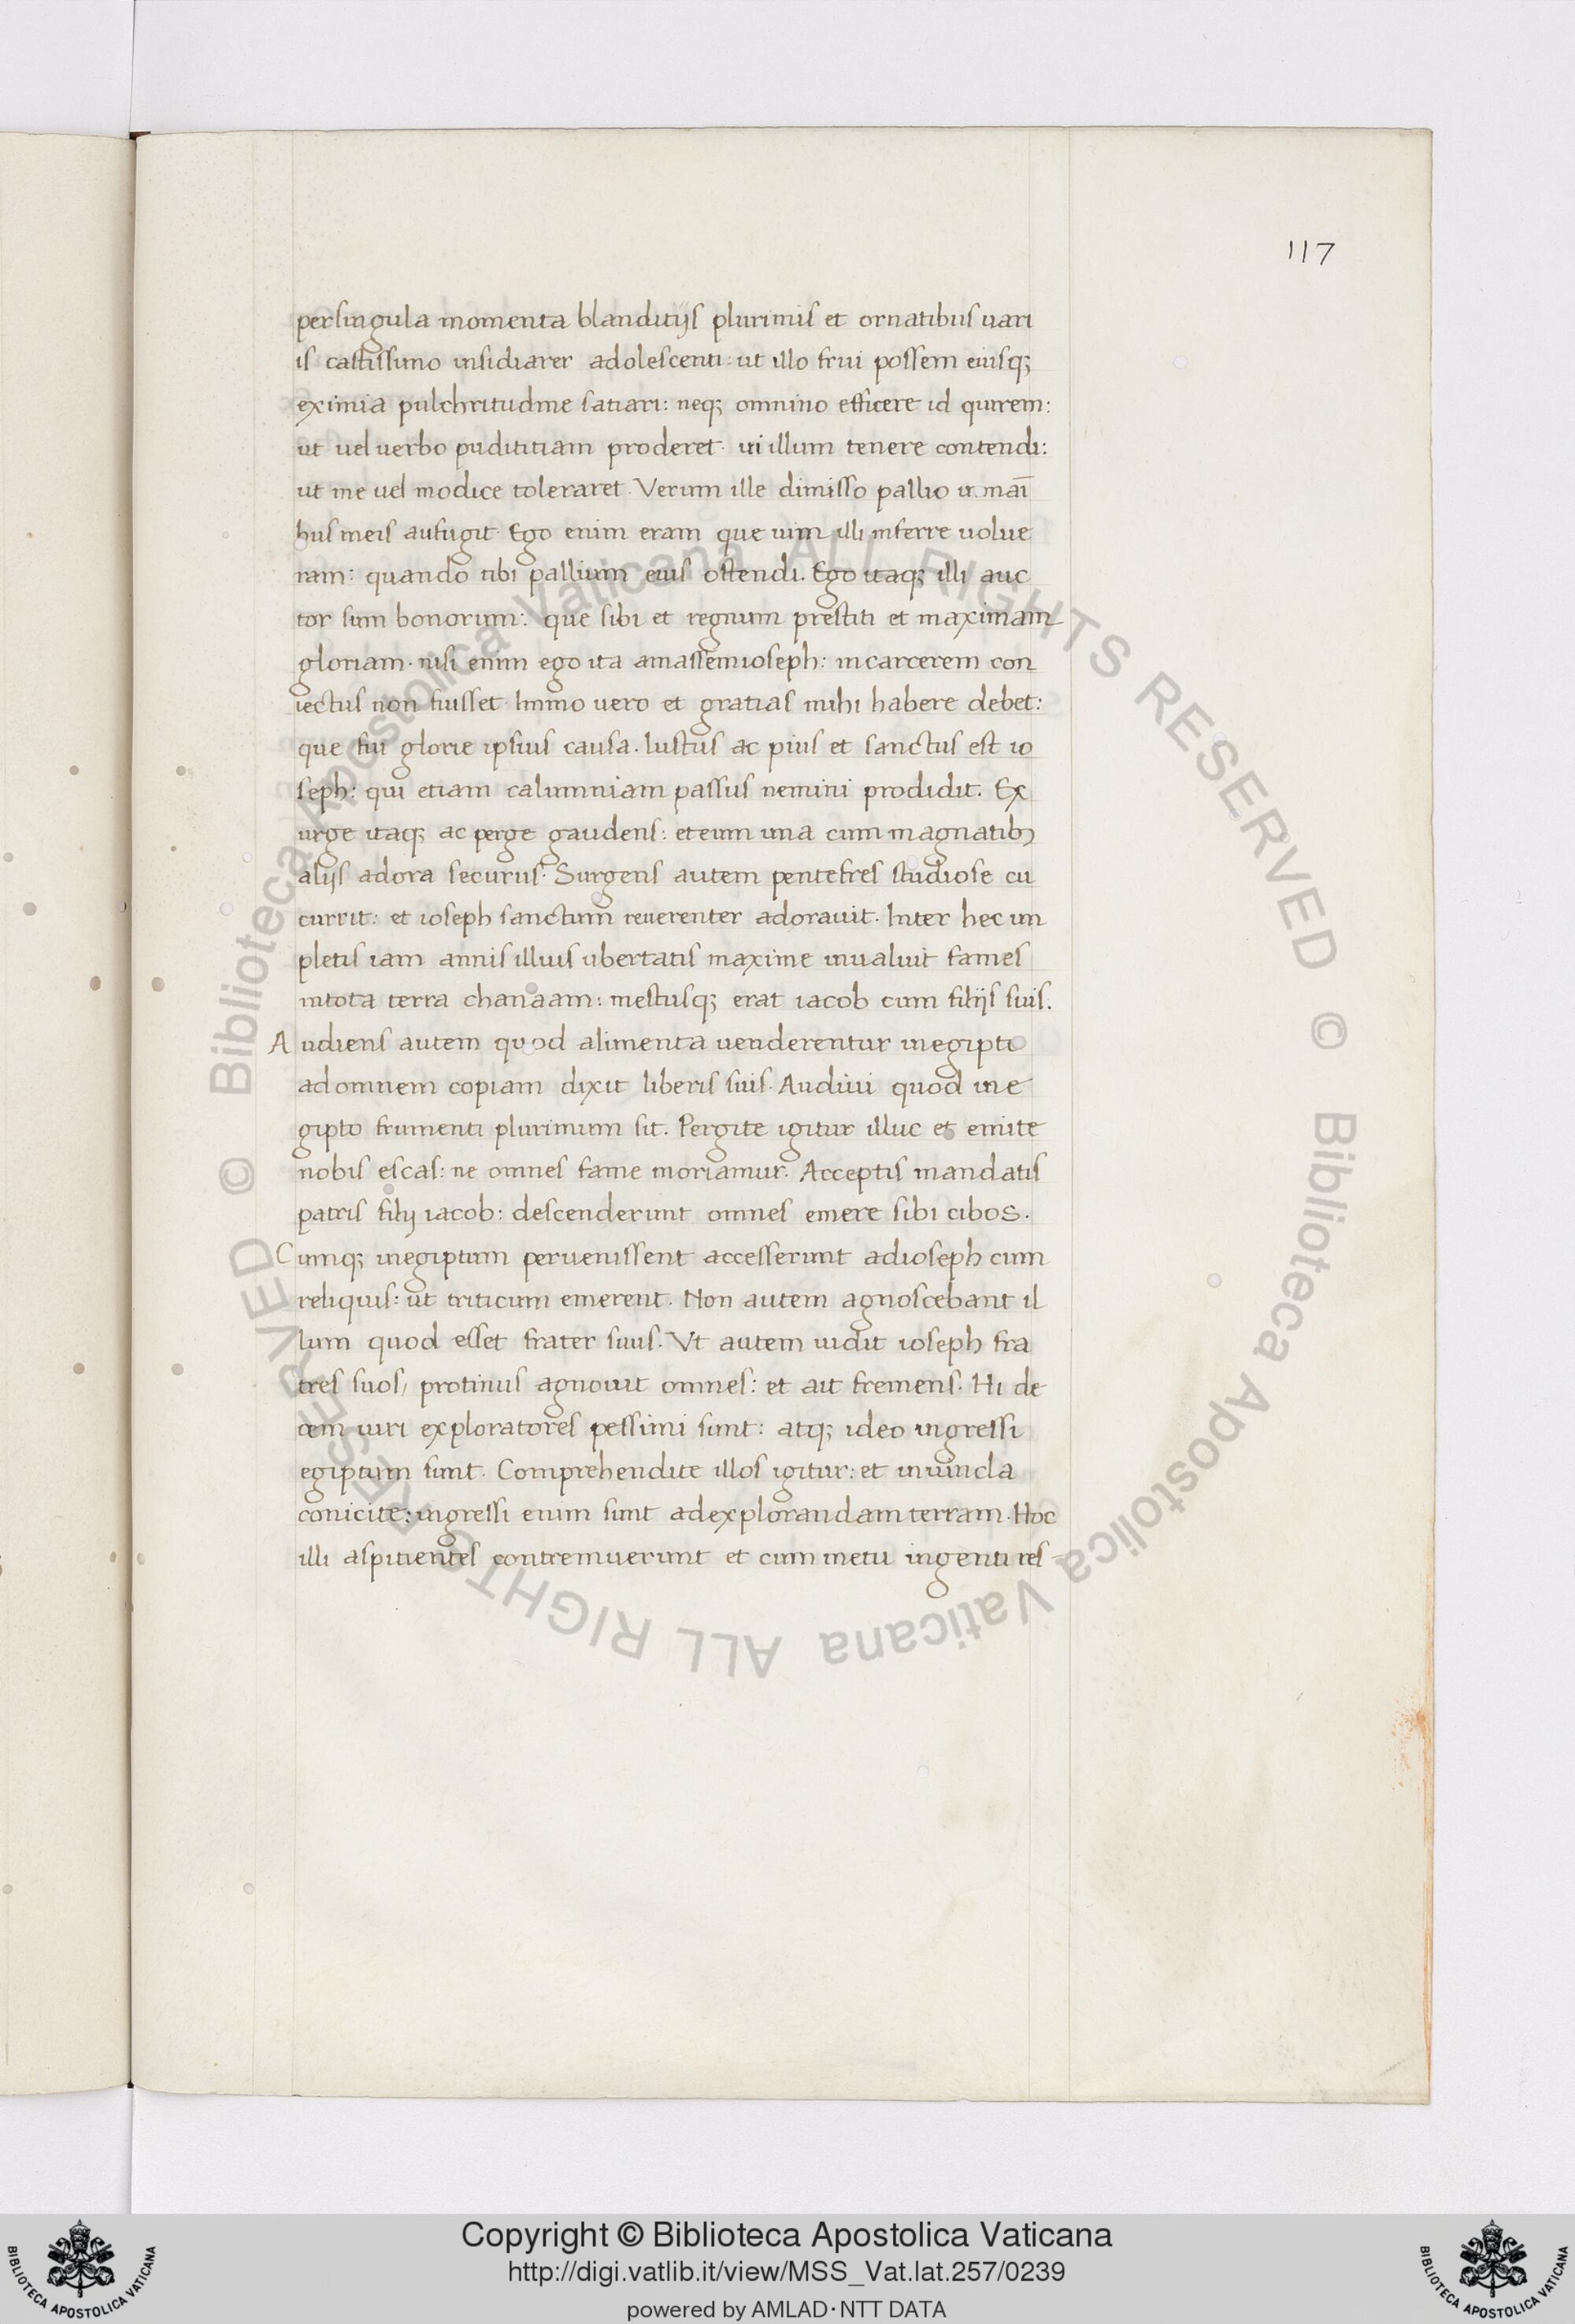 117
persingula momenta blanditijs plurimis et ornatibus uari
is castissimo insidiarer adolescenti: ut illo frui possem eiusq;
eximia pulchritudine satiari: neq; omnino efficere id quirem:
ut uel uerbo pudititiam proderet. ui illum tenere contendi:
ut me uel modice toleraret. Verum ille dimisso pallio
bus meis aufugit. Ego enim eram que uim illi inferre uolue
ram: quando tibi pallium eius ostendi. Ego itaq; illi auc
tor sum bonorum: que sibi et regnum prestiti et maximam
gloriam. nisi enim ego ita amassem ioseph: incarcerem con
iectus non fuisset. Immo uero et gratias mihi habere debet:
que fui glorie ipsius causa. Iustus ac pius et sanctus est io
seph: qui etiam calumniam passus nemini prodidit. Ex
urge itaq; ac perge gaudens: et eum una cum magnatib;
alijs adora securus. Surgens autem pentefres studiose cu
currit: et ioseph sanctum reuerenter adorauit. Inter hec im
pletis iam annis illius ubertatis maxime inualuit fames
intota terra chanaam: mestusq; erat iacob cum filijs suis.
Audiens autem quod alimenta uenderentur inegipto
ad omnem copiam dixit liberis suis. Audiui quod ine
gipto frumenti plurimum sit. Pergite igitur illuc et emite
nobis escas: ne omnes fame moriamur. Acceptis mandatis
patris filij iacob: descenderunt omnes emere sibi cibos.
Cumq; inegiptum peruenissent accesserunt adioseph cum
reliquis: ut triticum emerent. Non autem agnoscebant il
lum quod esset frater suus. Vt autem uidit ioseph fra
tres suos, protinus agnouit omnes: et ait fremens. Hi de
cem uiri exploratores pessimi sunt: atq; ideo ingressi
egiptum sunt. Comprehendite illos igitur: et inuincla
conicite: ingressi enim sunt adexplorandam terram. Hoc
illi aspitientes contremuerunt et cum metu ingenti res
© Biblioteca Apostolica Vaticana ALL RIGHTS RESERVED
© Biblioteca Apostolica Vaticana ALL RIGHTS RESERVED
BIBLIOTECA APOSTOLICA VATICANA
Copyright © Biblioteca Apostolica Vaticana
http://digi.vatlib.it/view/MSS_Vat.lat.257/0239
powered by AMLAD·NTT DATA
BIBLIOTECA APOSTOLICA VATICANA